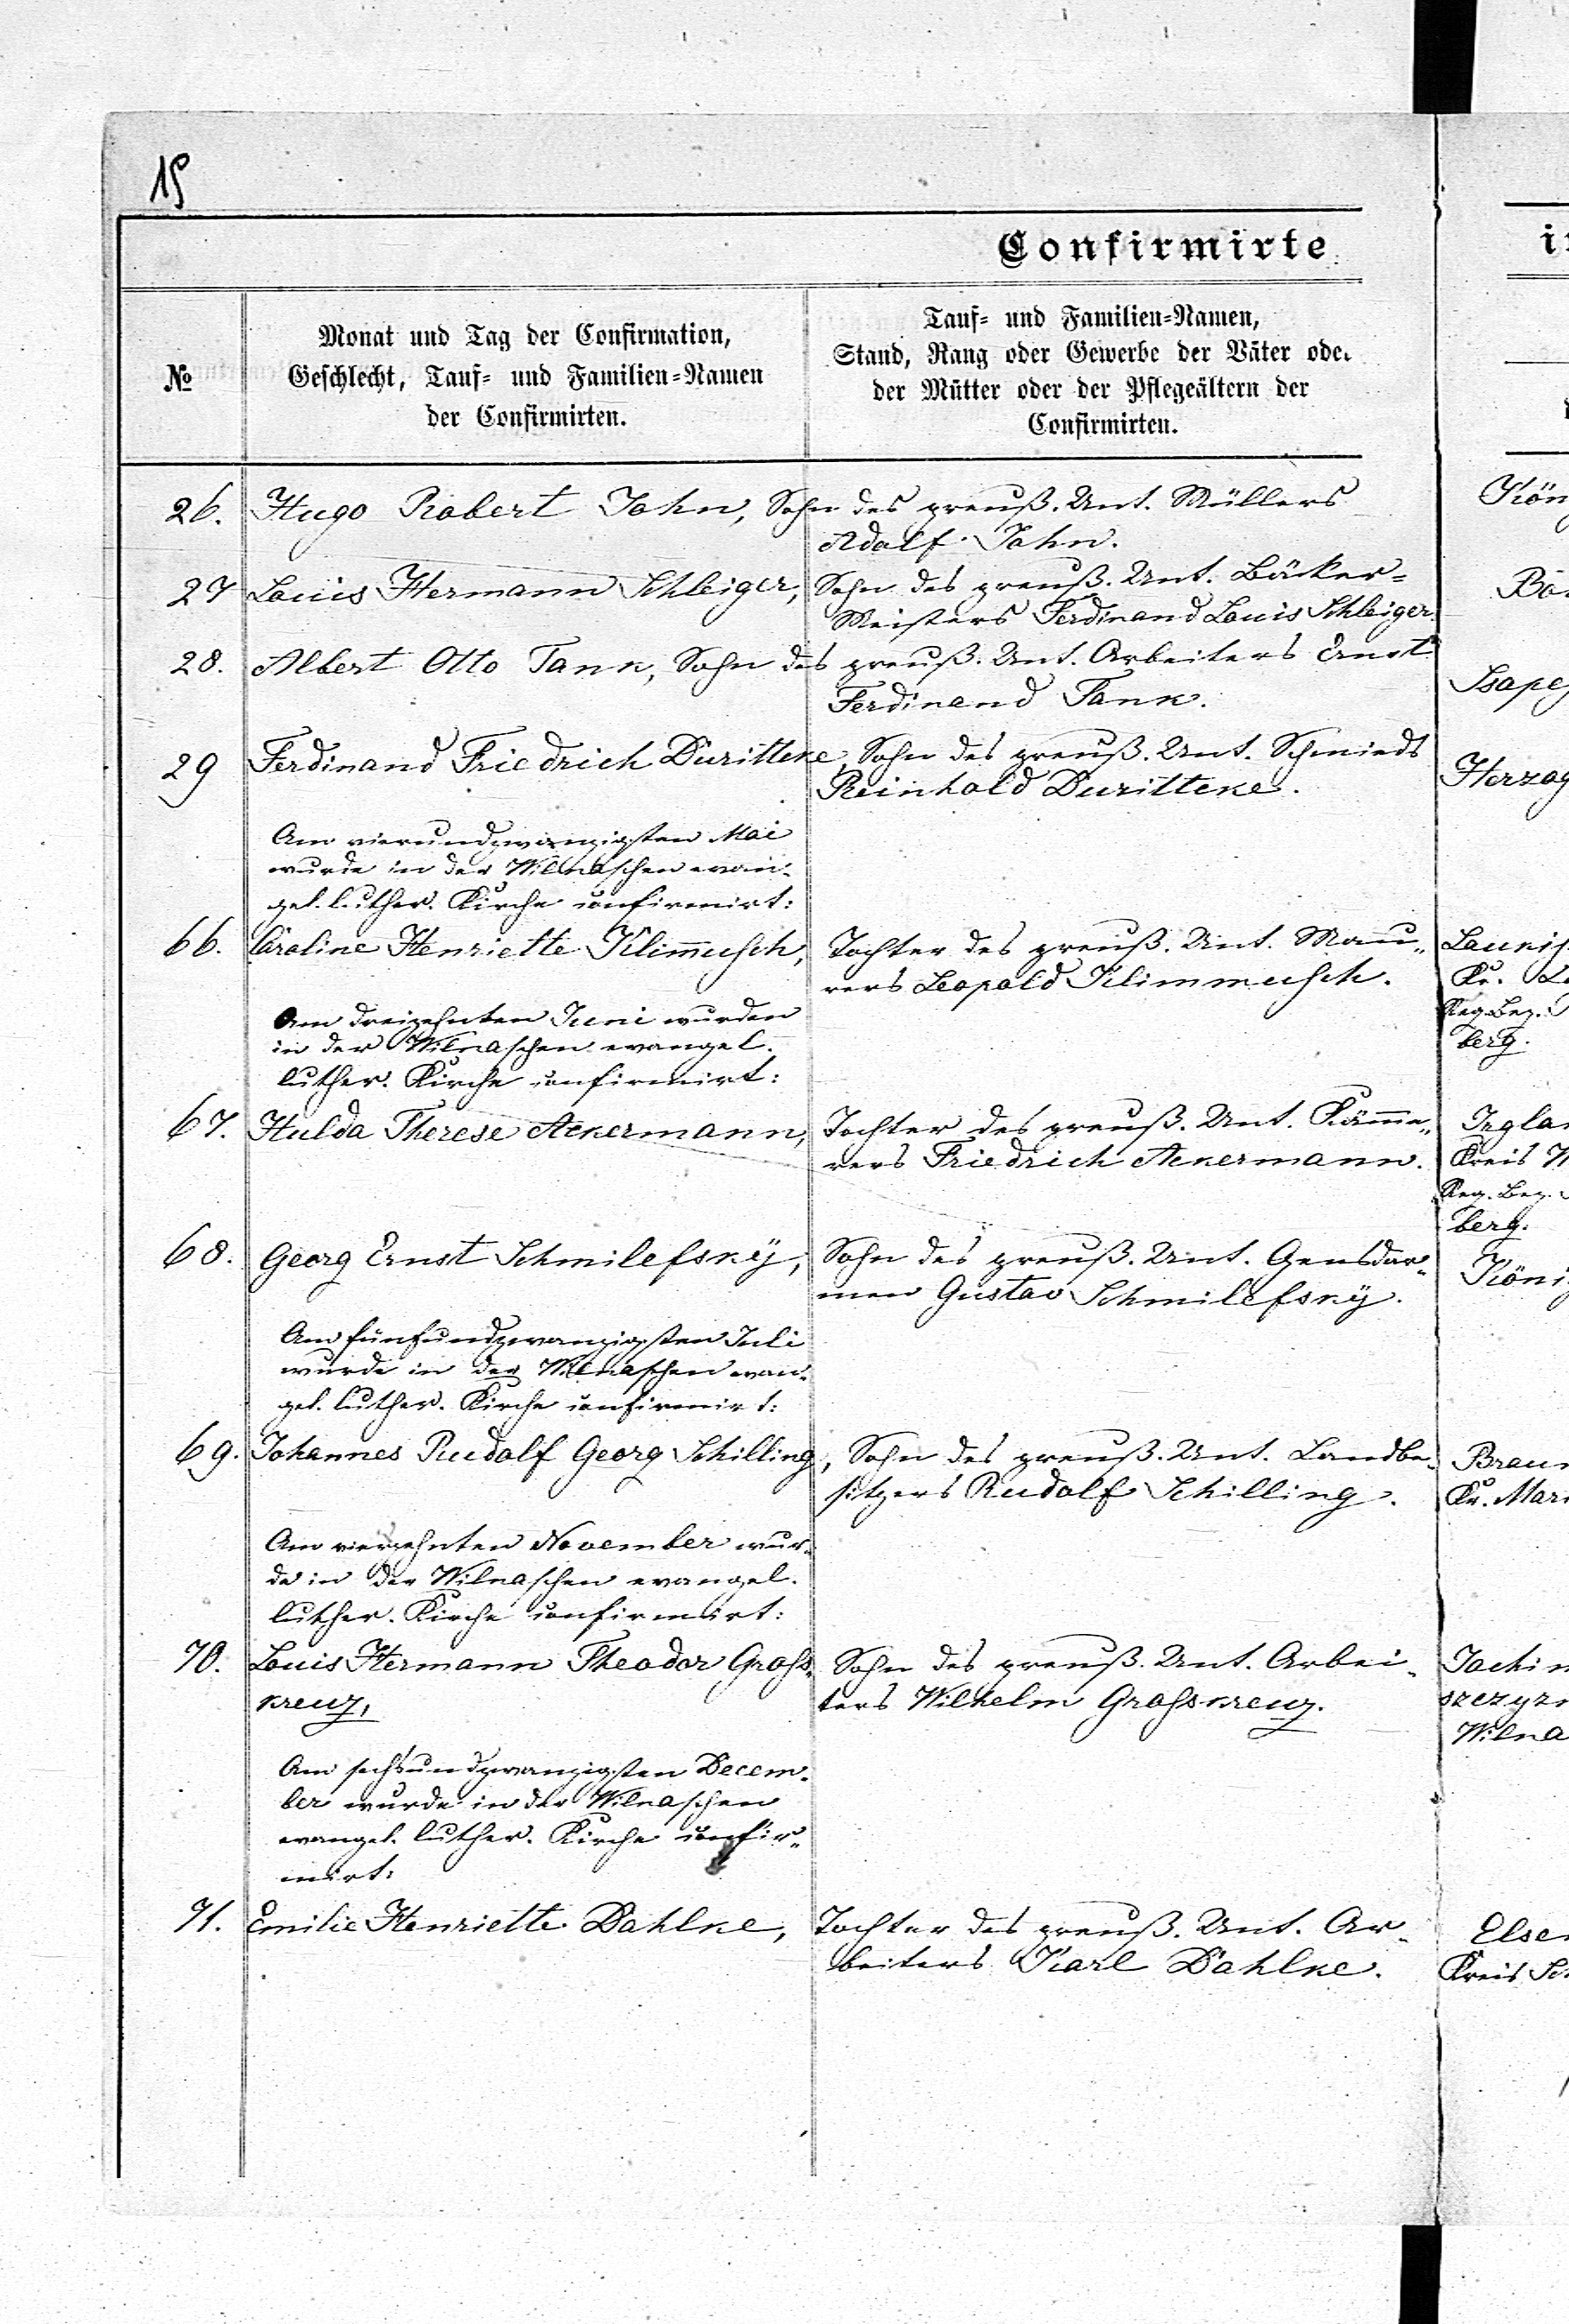 15
Confirmirte
№
Monat und Tag der Confirmation,
Geschlecht, Tauf- und Familien-Namen
der Confirmirten.
Tauf- und Familien-Namen,
Stand, Rang oder Gewerbe der Väter oder
der Mütter oder der Pflegeältern der
Confirmirten.
26. Hugo Robert Jahn, Sohn des preuß. Unt. Müllers
Adolf Jahn.
27 Louis Hermann Schleiger, Sohn des preuß. Unt. Bäcker-
Meisters Ferdinand Louis Schleiger.
28. Albert Otto Tank, Sohn des preuß. Unt. Arbeiters Ernst
Ferdinand Tank.
29 Ferdinand Friedrich Duritteke, Sohn des preuß. Unt. Schmieds
Reinhold Duritteke.
Herzog
Am vierundzwanzigsten Mai
wurde in der Wilnaschen evan-
gel. luther. Kirche confirmirt:
66. Caroline Henriette Klim̄usch, Tochter des preuß. Unt. Mau-
rers Leopold Klimmusch.
Kr.
Reg. Bez.
berg.
Am dreizehnten Juni wurden
in der Wilnaschen evangel.
luther. Kirche confirmirt:
67. Hulda Therese Ackermann, Tochter des preuß. Unt. Käm̄e-
rers Friedrich Ackermann.
Kreis
Reg. Bez.
berg.
68. Georg Ernst Schmilefsky, Sohn des preuß. Unt. Gensdar-
men Gustav Schmilefsky.
Am fünfundzwanzigsten Juli
wurde in der Wilnaschen evan-
gel. luther. Kirche confirmirt:
69. Johannes Rudolf Georg Schilling, Sohn des preuß. Unt. Landbe-
sitzers Rudolf Schilling.
Kr. Mari
Am vierzehnten November wur-
de in der Wilnaschen evangel.
luther. Kirche confirmirt:
70. Louis Hermann Theodor Gross- Sohn des preuß. Unt. Arbei-
kreuz, ters Wilhelm Grosskreuz.
Wilna
Am sechsundzwanzigsten Decem-
ber wurde in der Wilnaschen
evangel. luther. Kirche confir-
mirt:
71. Emilie Henriette Dahlke, Tochter des preuß. Unt. Ar-
beiters Karl Dahlke.
Kreis